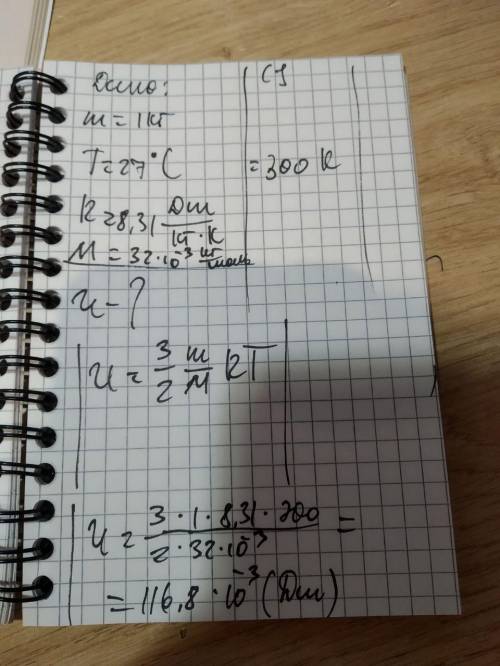 Дано:
СИ
m = 1 кг
T = 27°C
= 300 K
R = 8,31 Дж/кг·K
M = 32·10⁻³ кг/моль
U - ?
U = 3/2 m/M RT
U = 3·1·8,31·300 / 2·32·10⁻³ =
= 116,8·10⁻³ (Дж)